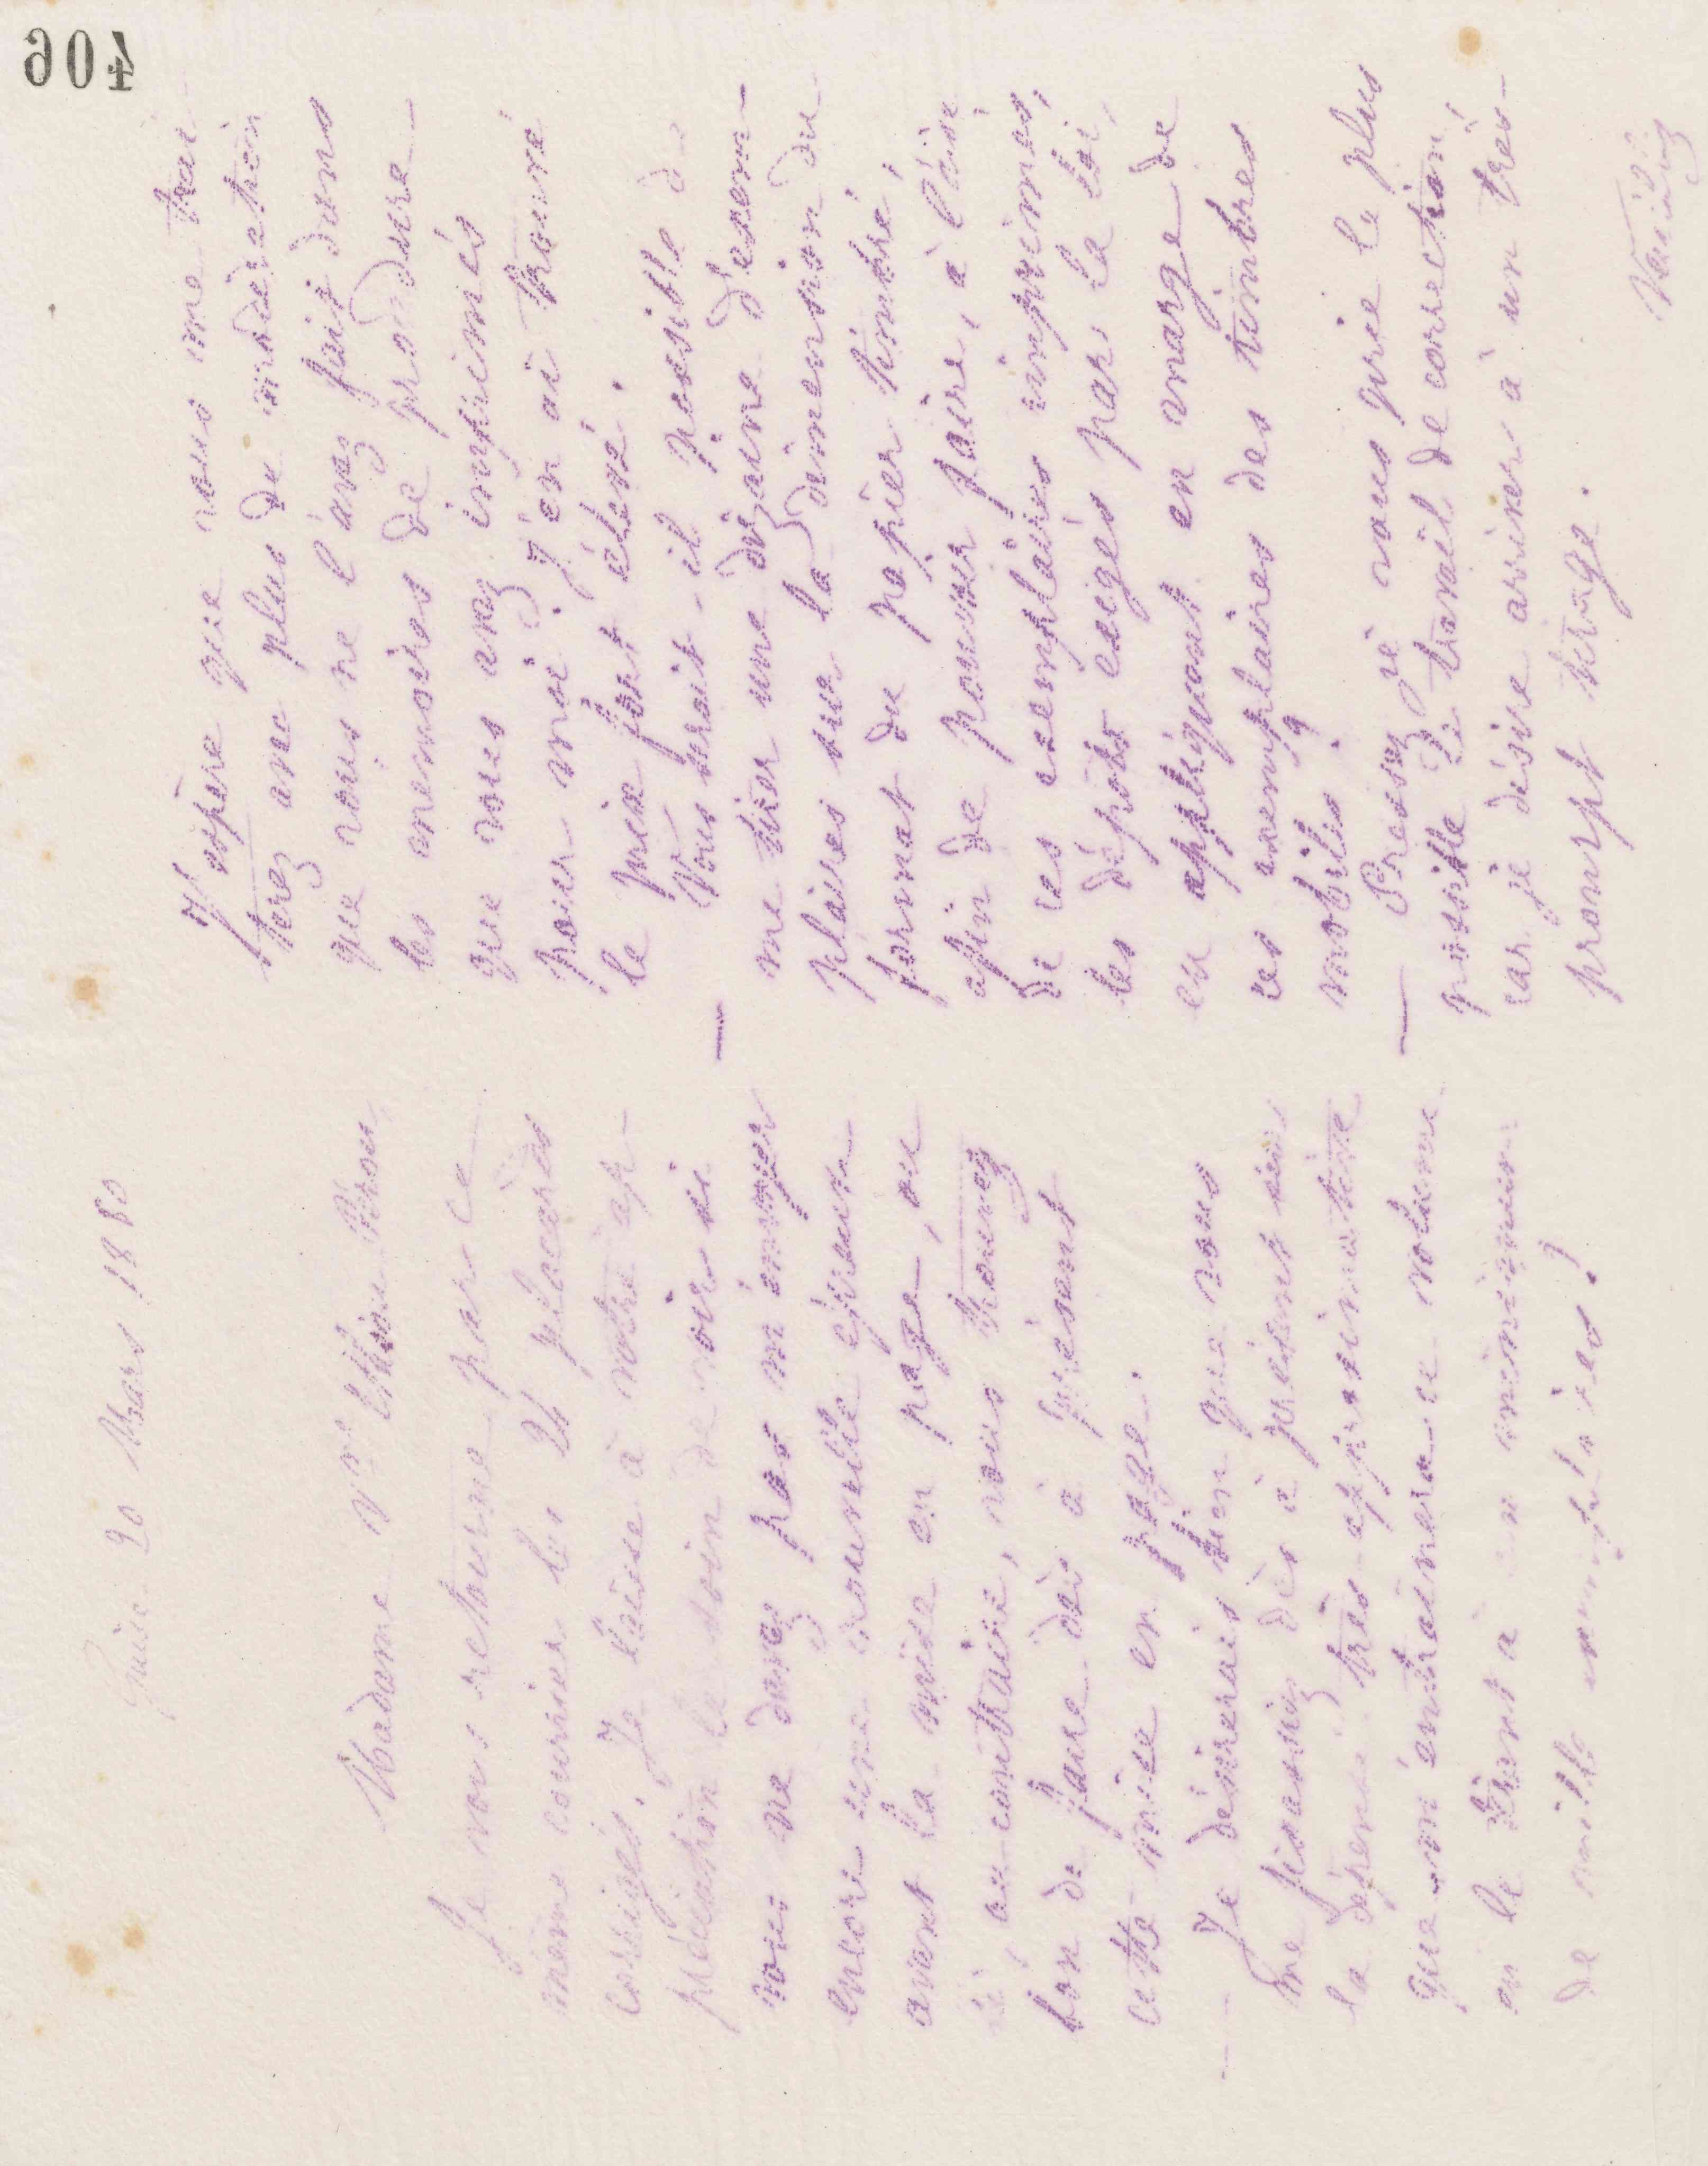 406
Guise 20 Mars 1880
Madame Vve Elisa Pirou
Je vous retourne par le
même courrier les 24 placards
corrigés. Je laisse à votre ap-
préciation le soin de voir si
vous ne devez pas m'envoyer
encore une nouvelle épreuve
avant la mise en page, ou
si, au contraire, vous trouvez
bon de faire dès à présent
cette mise en page.
— Je désirerais bien que vous
me fixassiez dès à présent sur
la dépense très approximative
que m'entraînera ce volume
en le tirant à un minimum
de mille exemplaires?
J'espère que vous me trai-
terez avec plus de modération
que vous ne l'avez fait dans
les mémoires de procédure
que vous avez imprimés
pour moi. J'en ai trouvé
le prix fort élevé.
— Vous serait-il possible de
me tirer une dizaine d'exem-
plaires sur la dimension du
format du papier timbré,
afin de pouvoir faire, à l'aide
de ces exemplaires imprimés,
les dépôts exigés par la loi,
en appliquant en marge de
ces exemplaires des timbres
mobiles?
— Pressez je vous prie le plus
possible le travail de correction,
car je désire arriver à un très-
prompt tirage.